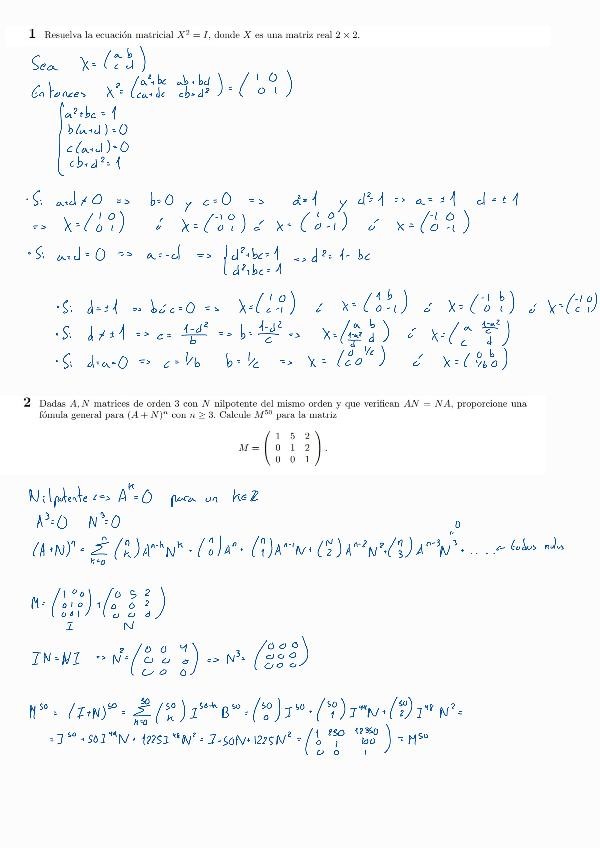 1 Resuelva la ecuación matricial X² = I, donde X es una matriz real 2 × 2.
Sea X = (a b; c d)
Entonces X² = (a²+bc ab+bd; ca+dc cb+d²) = (1 0; 0 1)
{a²+bc=1
b(a+d)=0
c(a+d)=0
cb+d²=1
· Si a+d≠0 => b=0 y c=0 => a²=1 y d²=1 => a=±1 d=±1
=> X=(1 0; 0 1) ó X=(-1 0; 0 1) ó X=(1 0; 0 -1) ó X=(-1 0; 0 -1)
· Si a+d=0 => a=-d => {d²+bc=1 d²+bc=1 => d²=1-bc
· Si d=±1 => b ó c=0 => X=(1 0; c -1) ó X=(1 b; 0 -1) ó X=(-1 b; 0 1) ó X=(-1 0; c 1)
· Si d≠±1 => c=(1-d²)/b => b=(1-d²)/c => X=(a b; (1-a²)/b d) ó X=(a (1-a²)/c; c d)
· Si d=a=0 => c=1/b b=1/c => X=(0 1/c; c 0) ó X=(0 b; 1/b 0)
2 Dadas A, N matrices de orden 3 con N nilpotente del mismo orden y que verifican AN = NA, proporcione una
fómula general para (A + N)ⁿ con n ≥ 3. Calcule M⁵⁰ para la matriz
M = (1 5 2; 0 1 2; 0 0 1).
Nilpotente <=> Aᵏ=0 para un k∈Z
A³=0 N³=0
(A+N)ⁿ = Σₖ₌₀ⁿ (n k) Aⁿ⁻ᵏ Nᵏ = (n 0) Aⁿ + (n 1) Aⁿ⁻¹N + (n 2) Aⁿ⁻²N² + (n 3) Aⁿ⁻³N³ + ....
M = (1 0 0; 0 1 0; 0 0 1) + (0 5 2; 0 0 2; 0 0 0)
I N
IN=NI => N² = (0 0 10; 0 0 0; 0 0 0) => N³ = (0 0 0; 0 0 0; 0 0 0)
M⁵⁰ = (I+N)⁵⁰ = Σₖ₌₀⁵⁰ (50 k) I⁵⁰⁻ᵏ B⁵⁰ = (50 0) I⁵⁰ + (50 1) I⁴⁹N + (50 2) I⁴⁸N² =
= I⁵⁰ + 50 I⁴⁹N + 1225 I⁴⁸N² = I + 50N + 1225N² = (1 250 12350; 0 1 100; 0 0 1) = M⁵⁰